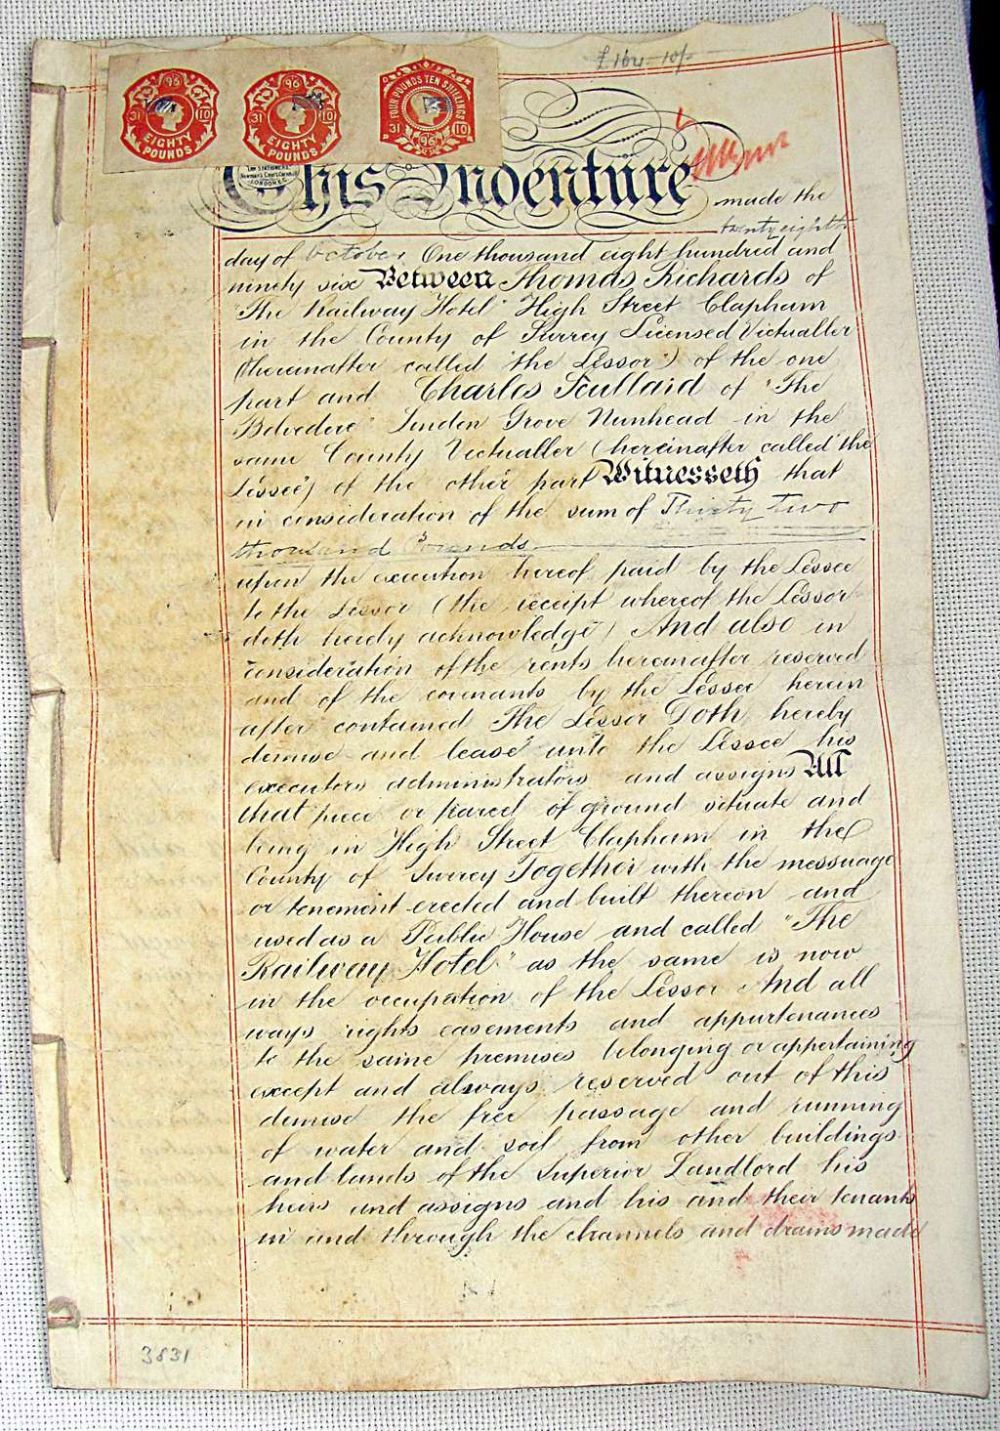 £164-10/-
96
31 10
EIGHTY
POUNDS
96
31 10
EIGHTY
POUNDS
FOUR POUNDS TEN SHILLINGS
31 10
96
LAW STATIONERS
LONDON E.C.
This Indenture
made the
twenty eighth
day of October One thousand eight hundred and
ninety six Between Thomas Richards of
"The Railway Hotel" High Street Clapham
in the County of Surrey Licensed Victualler
(hereinafter called "the Lessor") of the one
part and Charles Scullard of "The
Belvedere" Linden Grove Nunhead in the
same County Victualler (hereinafter called "the
Lessee") of the other part Witnesseth that
in consideration of the sum of Thirty Two
thousand Pounds
upon the execution hereof paid by the Lessee
to the Lessor (the receipt whereof the Lessor
doth hereby acknowledge) And also in
consideration of the rents hereinafter reserved
and of the covenants by the Lessee herein
after contained The Lessor Doth hereby
demise and lease unto the Lessee his
executors administrators and assigns All
that piece or parcel of ground situate and
being in High Street Clapham in the
County of Surrey Together with the messuage
or tenement erected and built thereon and
used as a Public House and called "The
Railway Hotel" as the same is now
in the occupation of the Lessor And all
ways rights easements and appurtenances
to the same premises belonging or appertaining
except and always reserved out of this
demise the free passage and running
of water and soil from other buildings
and lands of the Superior Landlord his
heirs and assigns and his and their tenants
in and through the channels and drains made
3831